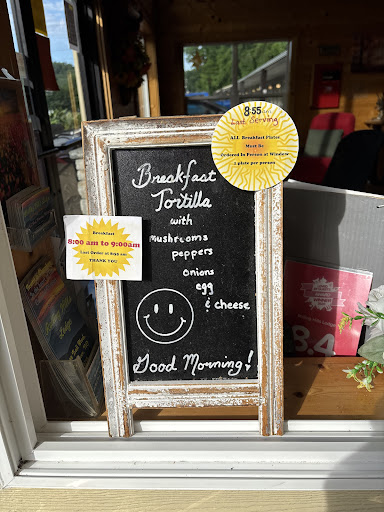 Breakfast
Tortilla
with
mushrooms
peppers
onions
egg
& cheese
Good Morning!
8:55
Last Serving
ALL Breakfast Plates
Must Be
Ordered In Person at Window
1 plate per person
Breakfast
8:00 am to 9:00am
Last Order at 8:55 am
THANK YOU
8.4